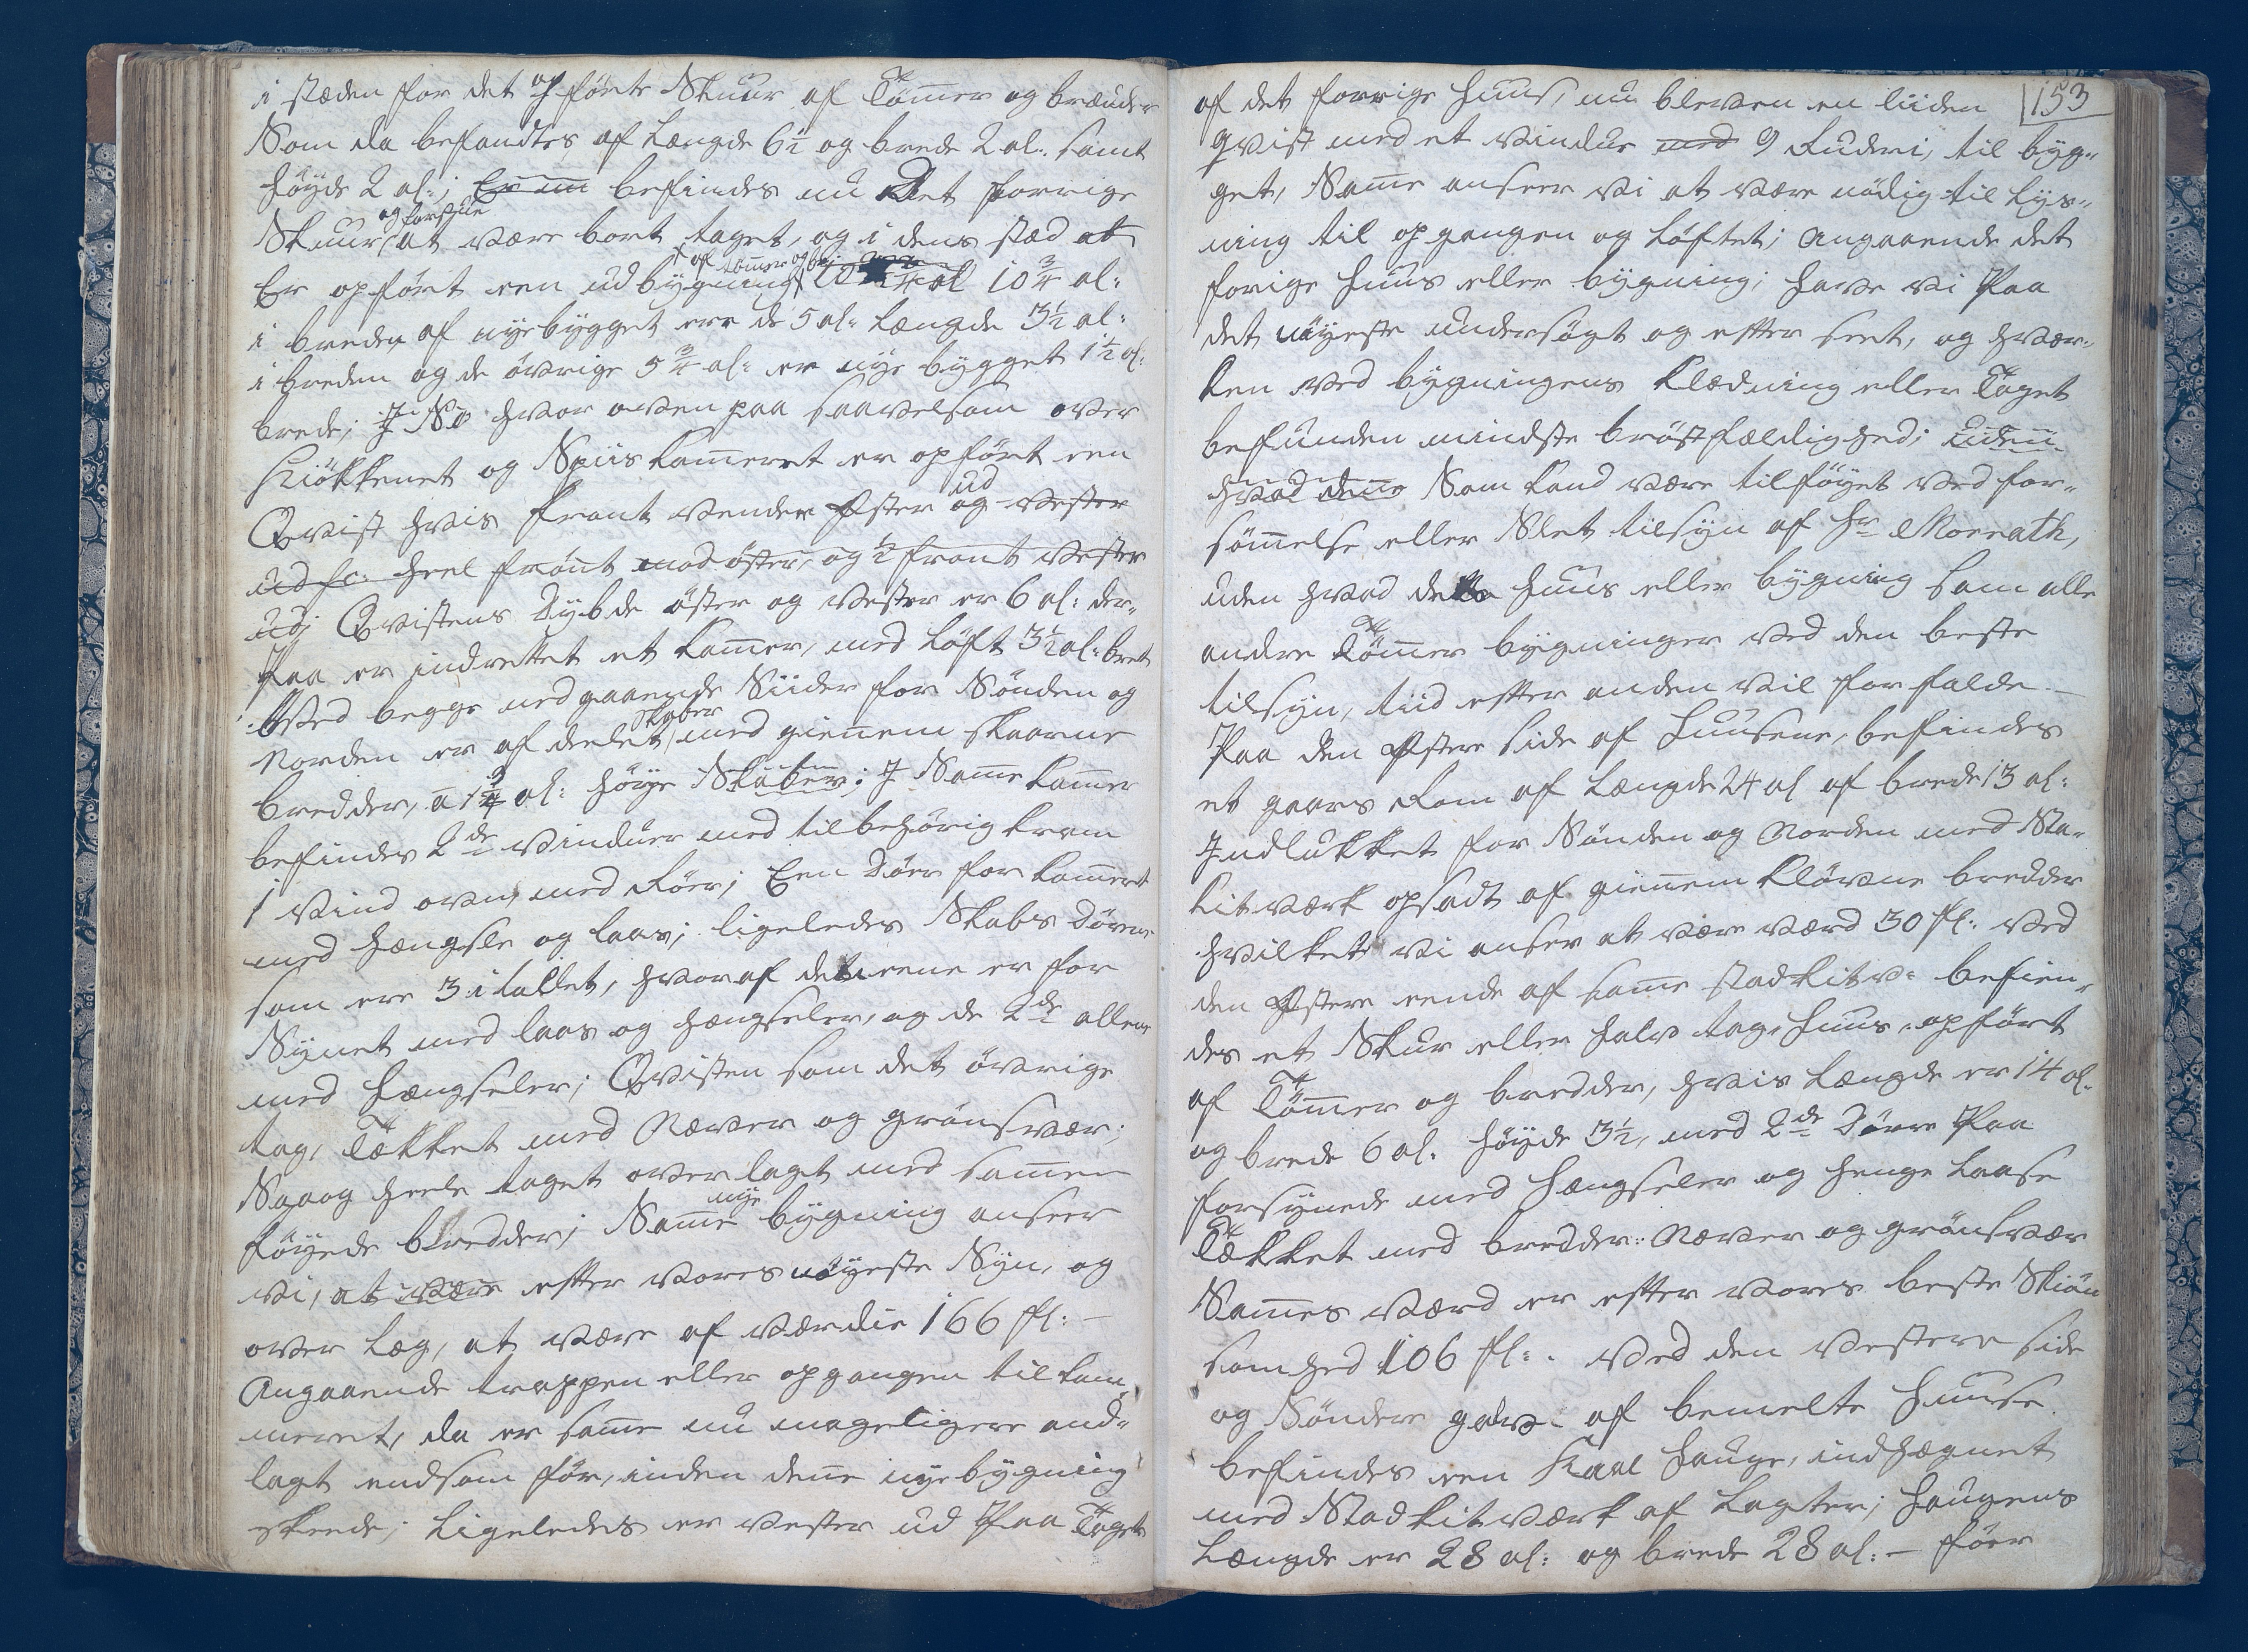 i stæden for det opførte Skuur af Tømmer og brædder
Som da befandtes af Længde 6½ og brede 2 al: samt
høyde 2 al:; befindes nu Det forrige
og forstue
Skuur, at være bort taget, og i dens stæd at
af tømmer og
Er opført een udbygning 10¾ al:
i breden af nye bygget ere de 5 al: Længde 3½ al:
i breden og de øvrige 5¾ al: er nye bygget 1½ al:
brede; hvor oven paa saavelsom over
Kiøkkenet og Spiiskammeret er opført een
ud
Qvist hvis front vender Øster og Vester
heel front mod øster, og ½ front vester
ud; Qvistens Dybde øster og vester er 6 al: der-
Paa er indrettet et kammer, med Løft 3½ al: bret
Ved begge nedgaaende Siider for Sønden og
skaber
Norden er af deelet, med giennem skaarne
bredder, a 1¾ al: høye Skaber; J Samme kammer
befindes 2de vinduer med tilbehørig kram
1 vind ovn, med Rør; Een Dør for kammeret
med hængsle og laas; ligeledes Skabs dørene
som ere 3 i tallet, hvoraf det eene er for
Synet med laas og hængseler, og de 2de allene
med hængseler; Qvisten som det øvrige
tag, Tækket med Næver og grønsvær;
Saaog heele taget overlagt med sammen
nye
føyede bredder; Samme bygning ansees
vi, at være efter vores nøyeste Syn, og
over læg, at være af værdie 166 fl: -
Angaaende trappen eller opgangen til kam-
meret, da er samme nu mageligere and-
lagt end som før, inden denne nye bygning
skeede; Ligeledes er vester ud Paa Taget
153
af det forrige huus, nu bleven en liiden
qvist med et vindue med 9 Ruder i, til byg-
get, Samme anseer vi at være nødig til lys-
ning til opgangen og Løftet; Angaaende det
forige huus eller bygning; have vi Paa
det nøyeste undersøgt og efter seet, og hver-
ken ved bygningens Klædning eller Taget
befunden mindste brøstfældighed; uden
hvad denne Som kand være tilføyet ved for-
sømmelse eller Slet tilsyn af Hr Morrath,
uden hvad dette huus eller bygning som alle
andre Tømmer bygninger ved den beste
tilsyn, tiid efter anden vil forfalde. -
Paa den Østere side af Huusene, befindes
et gaars Rom af Længde 24 al af brede 13 al:
Jndlukket for Sønden og Norden med Sta-
kitværk opsadt af giennem kløvne bredder
hvilket vi anser at være værd 30 fl: ved
den Østere ende af samme stadkitv: befien-
des et Skur eller halv tags huus opført
af Tømmer og bredder, hvis Længde er 14 al:
og brede 6 al: høyde 3½, med 2de Døre Paa
forsynede med hængseler og henge Laase
Tækket med bredder: Næver og grønsvær
Sammes værd er efter vores beste Skiøn
somhed 106 fl:. ved den vestere side
og Søndere galv: af bemelte huuse
befindes een Kaal hauge, indhægnet
med Stadkitværk af Lagter; haugens
Længde er 28 al: og brede 28 al: - føer